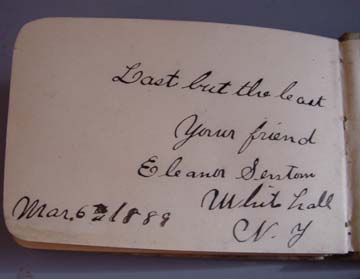 Last but the least
Your friend
Eleanor
White hall
Mar. 6th 1889
N. Y